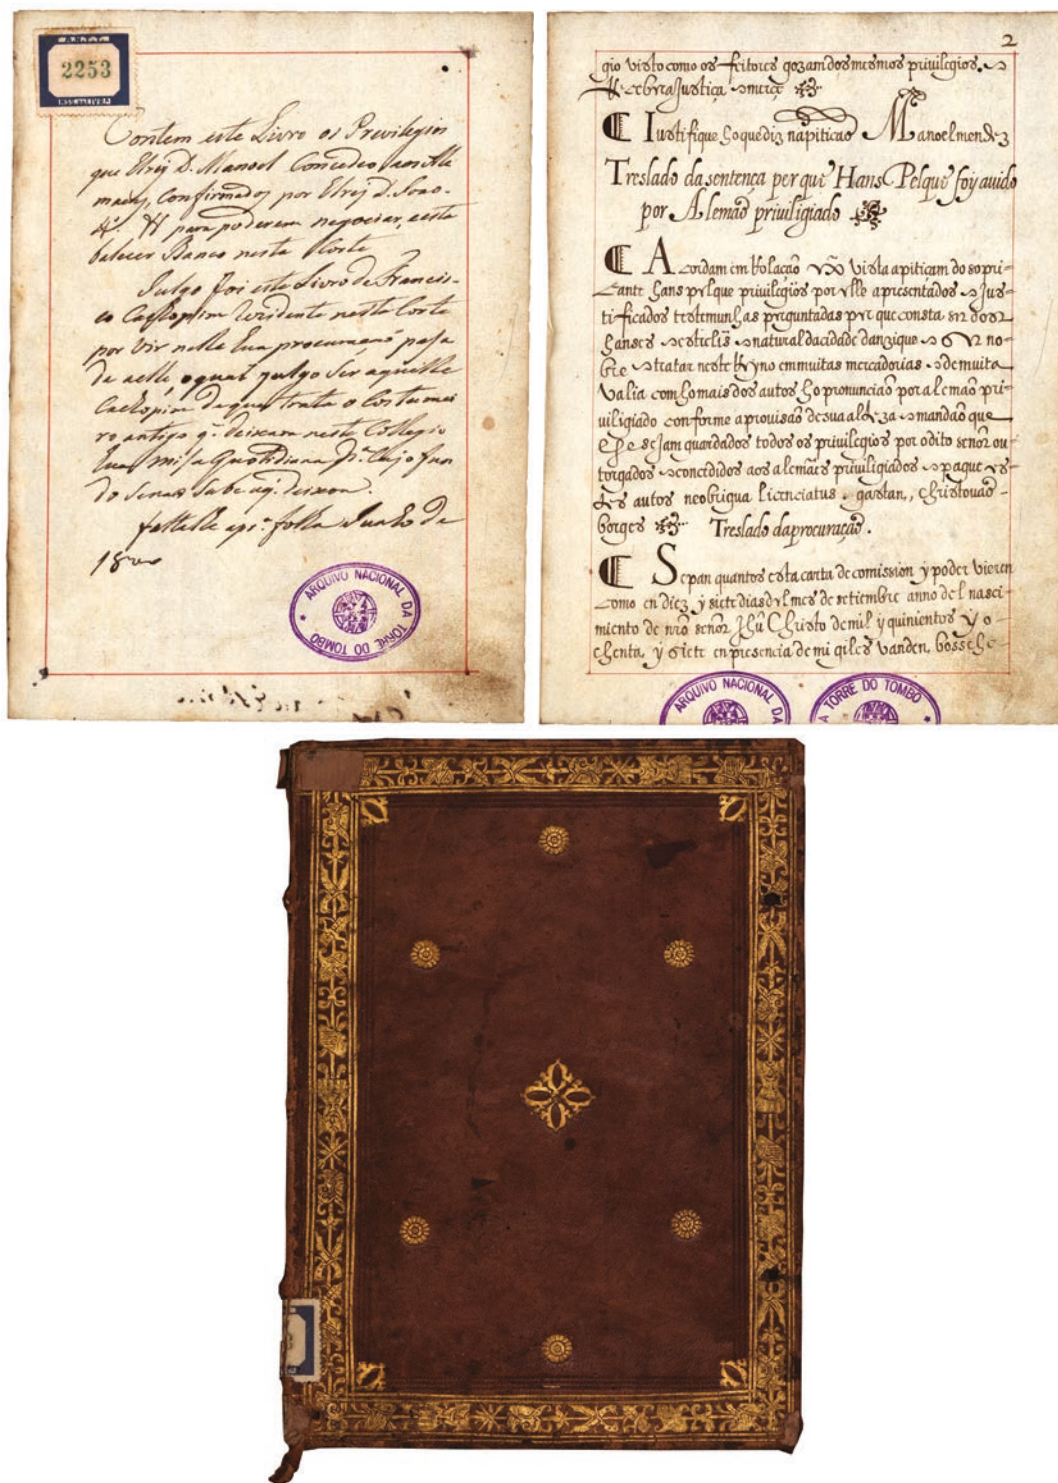 2253
Contem este Livro os Previlegios
que Elrej D. Manoel Concedeo aos Ale
maẽs, Confirmados por Elrej D. Joaõ
para poderem negociar, esta
balecer Banco nesta Corte
Julgo foi este Livro de Francis-
co Rezidente nesta Corte
por vir nelle hua procuraçaõ pasa
da aelle, oqual julgo ser aquelle
de que trata o Costumei
ro antigo q. deixara neste Collegio
hua misa Quotidiana pr. Cujo fun
do senaõ sabe aq. deixou.
folha
ARQUIVO NACIONAL DA TORRE DO TOMBO
2
gio visto como os feitores gozam dos mesmos priuilegios. e
Receberá Justiça e merce
Iustifique ho que diz na pitição Manoel mendez
Treslado da sentença per que Hans Pelque foy auido
por Alemaõ priuiligiado
Acordam em Rolação vista a pitiçam do sopri-
cante hans pelque priuilegios por elle apresentados e Jus-
tificados testemunhas preguntadas per que consta ser dos
hanses e natural da cidade danzique e no-
bre e tratar neste Reyno em muitas mercadorias e de muita
valia com ho mais dos autos ho pronunciaõ por alemaõ pri-
uiligiado conforme a prouisaõ de sua alteza e mandaõ que
lhe sejam guardados todos os priuilegios por o dito senõr ou-
torgados e concedidos aos alemaẽs priuiligiados e pague es-
tes autos neobrigua licenciatus . gastan,, christouaõ
borges Treslado da procuração.
Sepan quantos esta carta de comission y poder vieren
como en diez y siete dias del mes de setiembre anno del nasci-
miento de nro señor Jhũ Christo de mil y quinientos y o-
chenta, y siete en presencia de mi giles vanden, bossche
ARQUIVO NACIONAL DA
A TORRE DO TOMBO